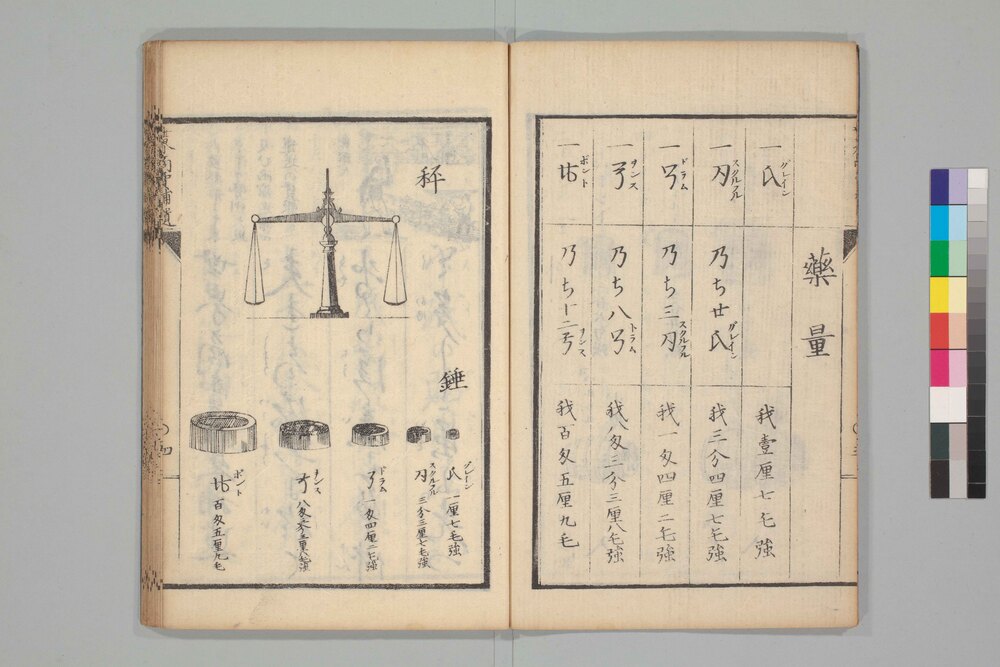 藥量
一氏 グレイン
我壹厘七毛強
一刄 スクルフル
乃ち廿氏 グレイン
我三分四厘七毛強
一 ドラム
乃ち三刄 スクルフル
我一匁四厘二毛強
一 ヲンス
乃ち八 トラム
我八匁三分三厘八毛強
一 ポント
乃ち十二 ヲンス
我百匁五厘九毛
秤
錘
氏 グレイン 一厘七毛強
刄 スクルフル 三分三厘七毛強
ドラム 一匁四厘二毛強
ヲンス 八匁
ポント 百匁五厘九毛